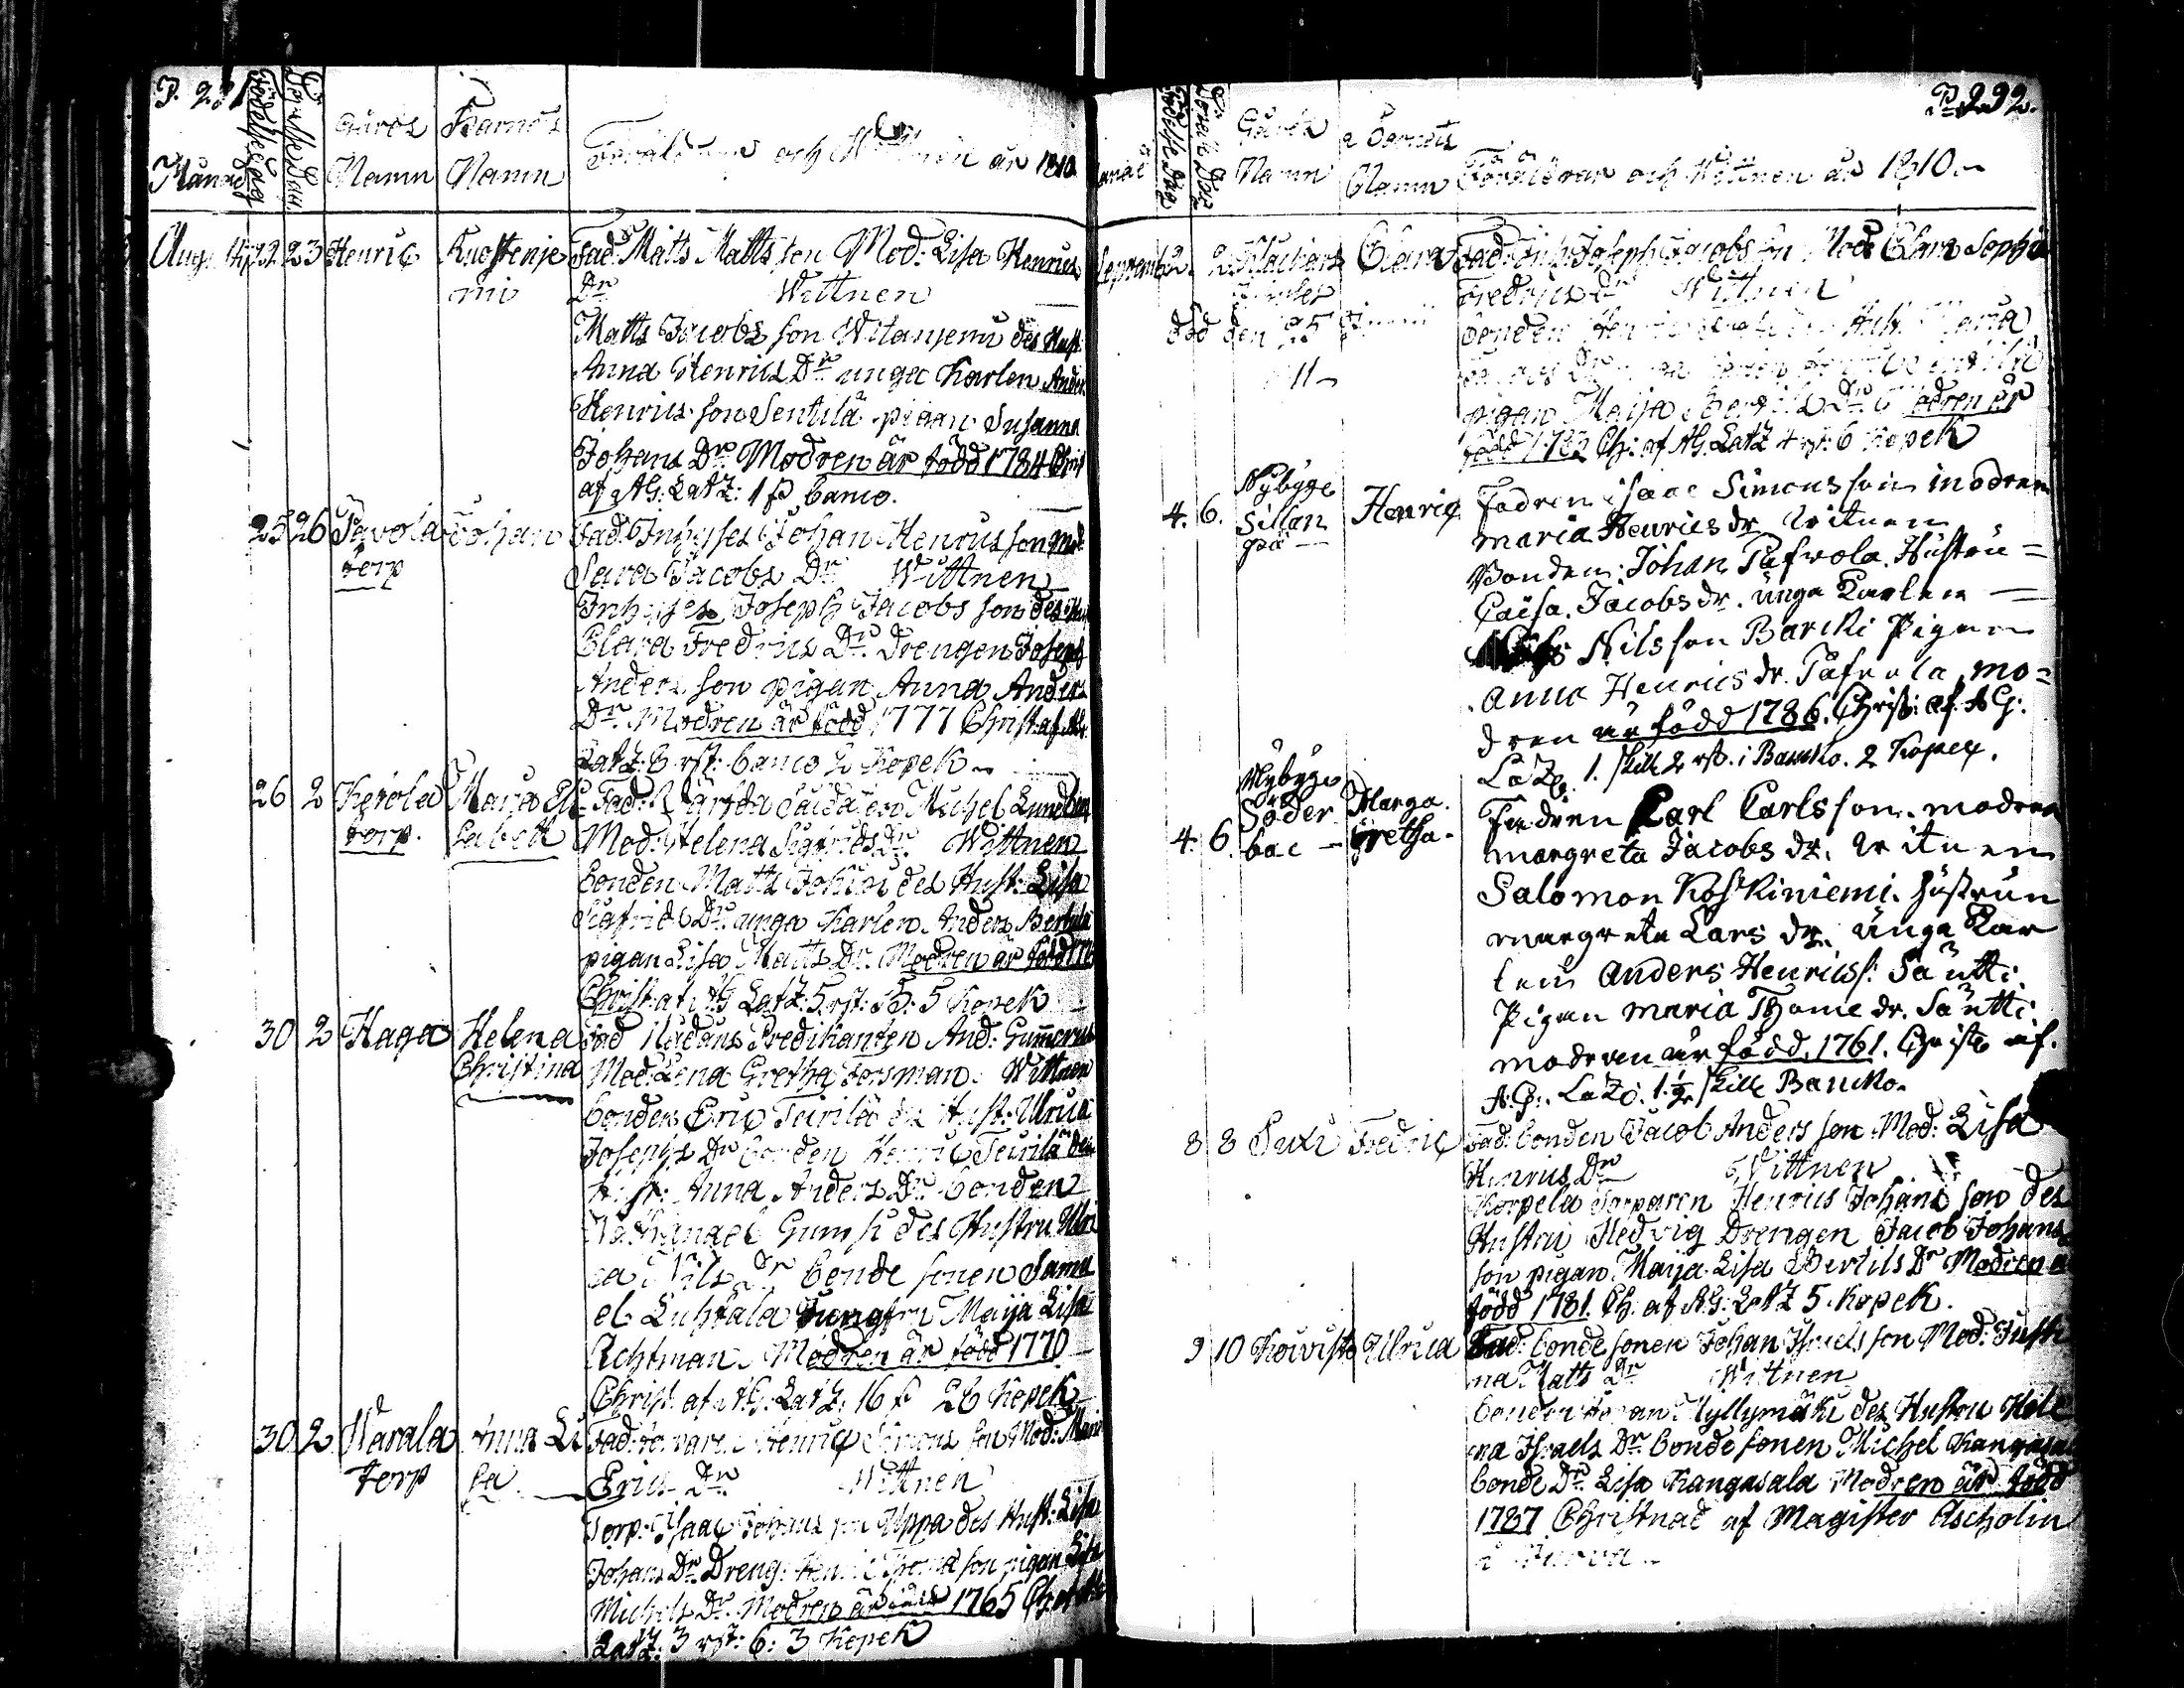 P. 291
Månad Födelse Dag Döpelse Dag Gårds Namn Barnets Namn Föräldrarne och Wittnen år 1810.
Aug. 22 23 Henric Fad: Matts Matts son Mod: Lisa Henrics
Dr Wittnen
Matts Jacobs son Witaniemi des Hust:
Anna Henrics Dr unga Karlen Anders
Henrics son Sentilä pigan Susanna
Johans Dr Modren är född 1784 Christ
af AG: LatZ: 1 ß banco.
25 26 Pavola Johan Fad: Inhyses Johan Henrics son Mod:
torp Sara Jacobs Dr Wittnen
Inhyses Joseph Jacobs son des Hust
Clara Fredrics Dr Drengen Joseph
Anders son pigan Anna Anders
Dr Modren är född 1777 Christ af AG:
LatZ: 6 rst: banco 2 Kopek
26 2 Kerola Maria Eli Fad: Michel
torp. sabeth Mod: Helena Sigfrids Dr Wittnen
bonden Matts des Hust: Lisa
Sigfrids Dr unga Karlen Anders
pigan Lisa Matts Dr Modren är född
Christ: af AG LatZ: 5 rst: B: 5 Kopek
30 2 Haga Helena Fad Nådåns Predikanten And: Gummerus
Christina Mod: Lena Gretha Forsman. Wittnen
bonden Eric Teirilä des Hust: Ulrica
Josephs Dr bonden Henric Teirilä des
Hust: Anna Anders Dr bonden
des Hustru Ulri
ca Nils Dr bonde sonen Samu
el Luhtala Jungfru Maija Lisa
Achtman. Modren är född 1770
Christ af AG: LatZ. 16 ß 26 Kopek
30 2 Warala Anna Li Fad: Henric Simons son Mod: Maria
torp sa Erics Dr Wittnen
Torp: Isaac Johans son Uppa des Hust: Lisa
Johans Dr Dreng: son pigan Lisa
Michels Dr Modren är född 1765 Ch: af AG
LatZ: 3 rst: 6: 3 Kopek
P. 292.
Månad Födelse Dag Döpelse Dag Gårds Namn Barnets Namn Föräldrar och Wittnen år 1810
Septemb 2. 2 Clara Fad: Inh: Joseph Jacobs son Mod: Clara Sophia
Fredrics Dr Wittnen
död den 25 bonden Hust. Maria
11
pigan Maija Dr Modren är
född 1783 Ch: af AG: LatZ 4 rst: 6 Kopek
4. 6. Nybyge Henric Fadren isaac Simons son modren
Sillan maria Henrics dr witnen
pä Bonden: Johan Pafvola. Hustru
Caisa. Jacobs dr. unga Karlen
Nils son Barcki Pigan
anna Henrics dr. Pafvola, mo=
dren är född 1786. Christ: af AG:
LaZ: 1. skill 2 rst. i Bancko. 2 Kopek.
4. 6. Nybyge Marga. Fadren Carl Carlsson. modren
Söder gretha. margreta Jacobs dr. witnen
bac Salomon Koskiniemi. hustrun
margreta Lars dr. unga Kar
len anders Henrics s: Säntti
Pigan maria Thome dr. Säntti
modren är född. 1761. Christ af.
A:G: LaZ: 1. ½ skill Bancko.
8 8 Suxi Fredric Fad: bonden Jacob Anders son Mod: Lisa
Henrics Dr Wittnen
Korpela Torparen Henric Johans son des
Hustru Hedvig Drengen Jacob Johans
son pigan Maija Lisa Bertils Dr Modren är
född 1781. Ch. af AG: LatZ 5. Kopek.
9 10 Koivisto Ulrica Fad: bonde sonen Johan Israels son Mod: Justi
na Matts Dr Wittnen
bonden Johan Myllymäki des Hustru Hele
na Israels Dr. bonde sonen Michel Kangasala
bonde Dr. Lisa Kangasala Modren är född
1787 Christnad af Magister Ascholin